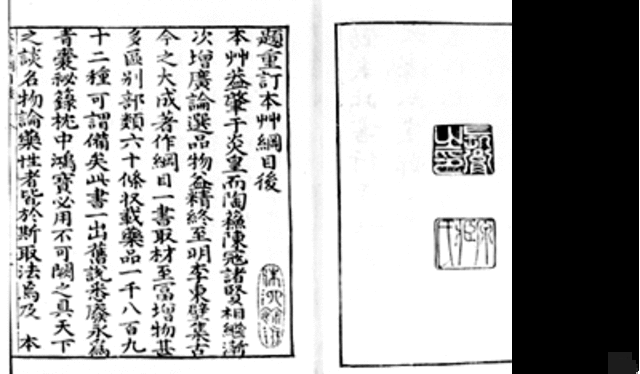 題重訂本艸綱目後
本艸益肇于炎皇而陶蘓陳寇諸賢相繼漸
次增廣論選品物益精終至明李東璧集古
今之大成著作綱目一書取材至富增物甚
多區别部類六十條收載藥品一千八百九
十二種可謂備矣此書一出舊說悉廢永為
青囊祕籙枕中鴻寶必用不可闕之具天下
之談名物論藥性者皆於斯取法焉及 本